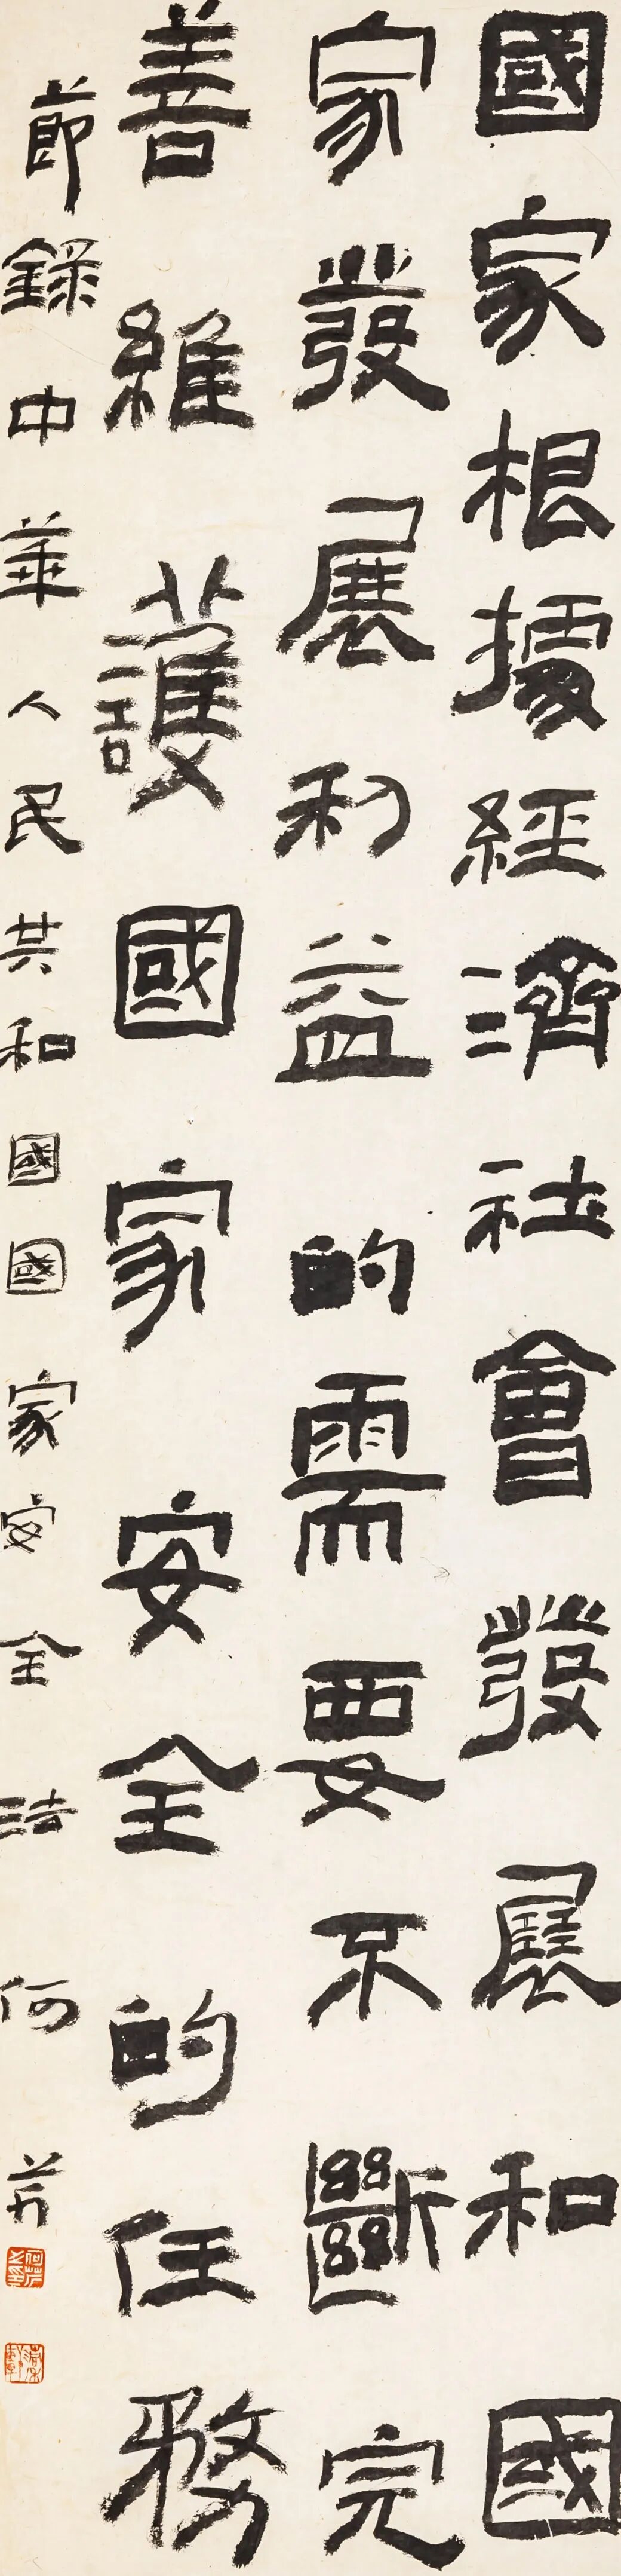 國家根據經濟社會發展和國
家發展利益的需要不斷完
善維護國家安全的任務
節錄中華人民共和國國家安全法 何